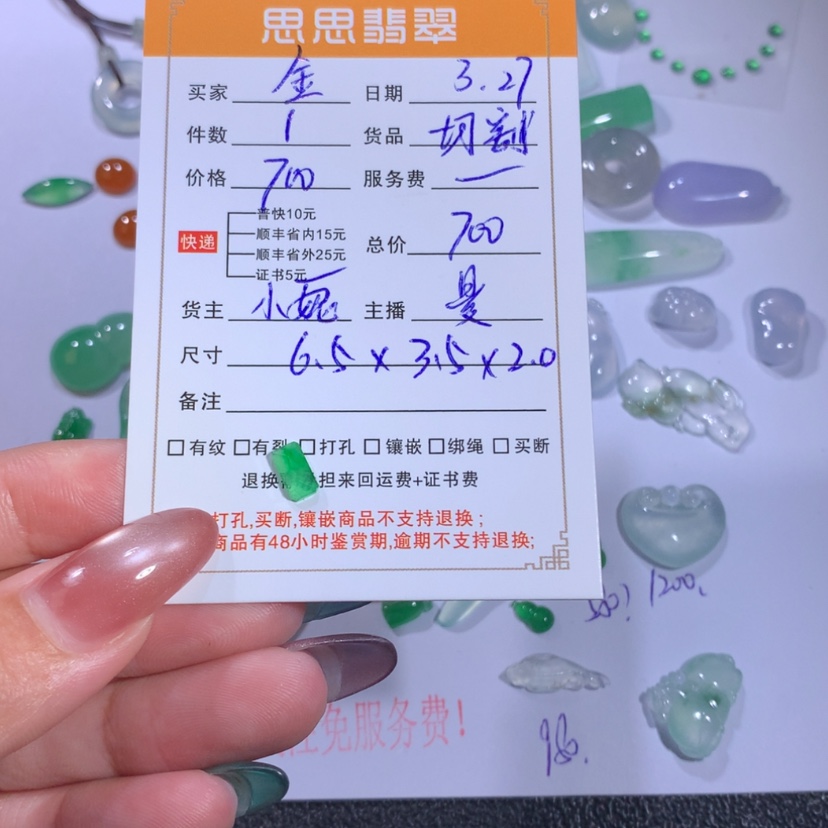 思思翡翠
买家 金 日期 3.27
件数 1 货品 切割
价格 700 服务费 一
快递 普快10元
顺丰省内15元
顺丰省外25元
证书5元
总价 700
货主 小 主播 曼
尺寸 6.5 x 3.5 x 2.0
备注
□有纹 □有裂 □打孔 □镶嵌 □绑绳 □买断
退换 担来回运费+证书费
打孔,买断,镶嵌商品不支持退换;
商品有48小时鉴赏期,逾期不支持退换;
1200.
免服务费!
980.